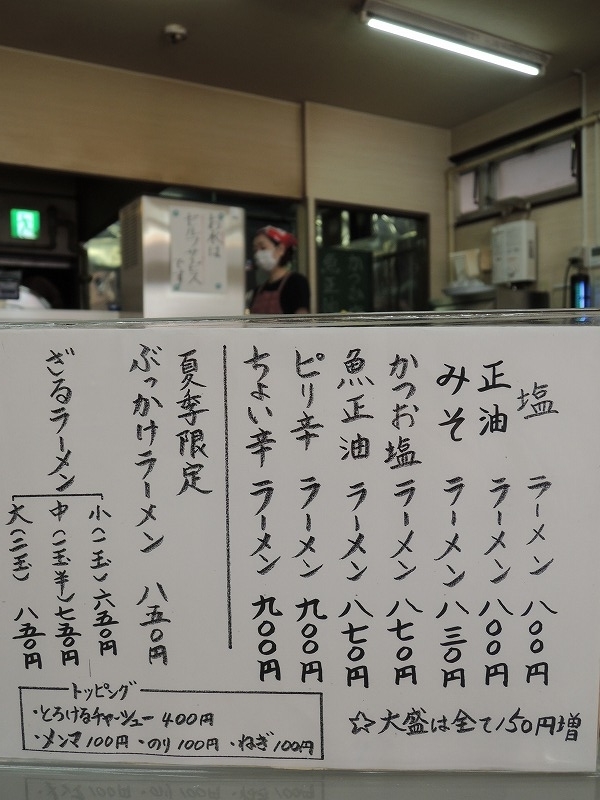 塩 ラーメン 八〇〇円
正油 ラーメン 八〇〇円
みそ ラーメン 八三〇円
かつお塩 ラーメン 八七〇円
魚正油 ラーメン 八七〇円
ピリ辛 ラーメン 九〇〇円
ちょい辛 ラーメン 九〇〇円
☆大盛は全て150円増
夏季限定
ぶっかけラーメン 八五〇円
ざるラーメン
小(一玉)六五〇円
中(一玉半)七五〇円
大(二玉) 八五〇円
トッピング
・とろけるチャーシュー 400円
・メンマ100円・のり100円・ねぎ100円
お水は
セルフサービス